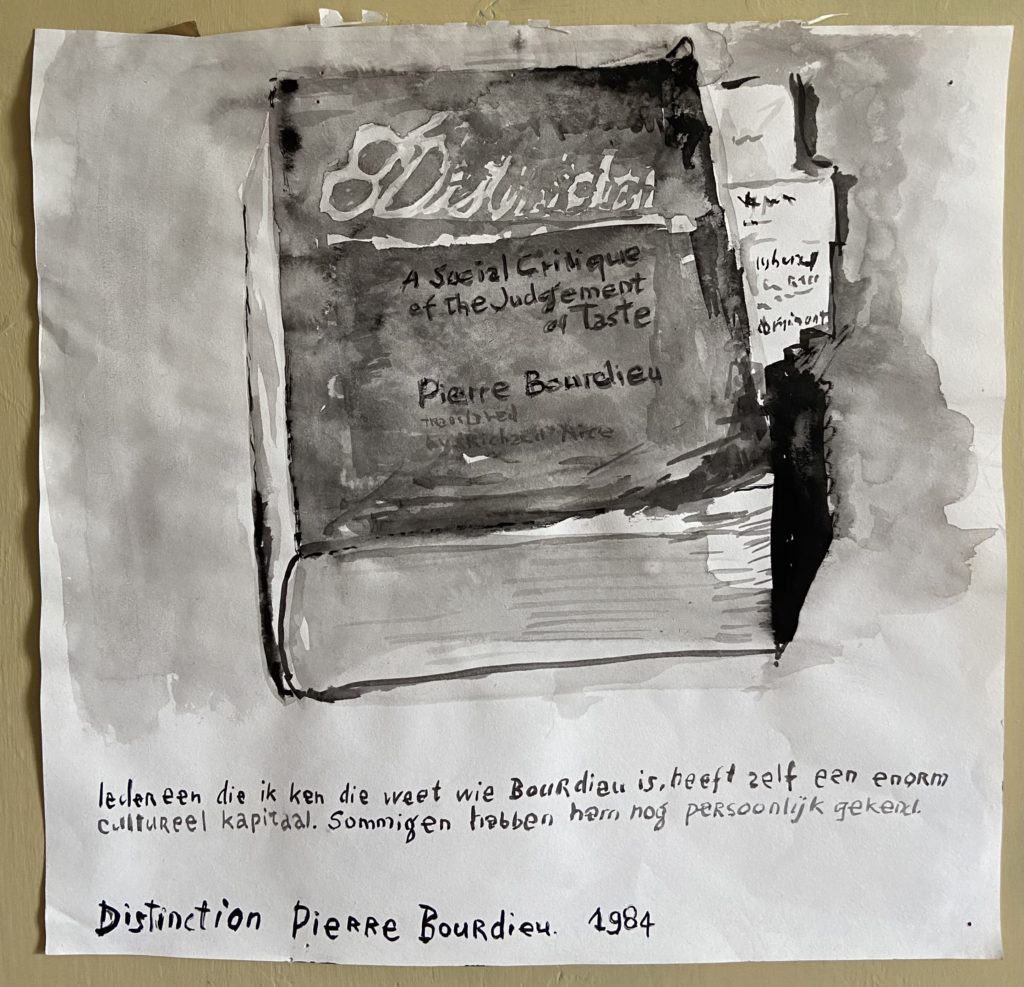 Distinction
A Social Critique
of the Judgement
of Taste
Pierre Bourdieu
Translated
by Richard Nice
Iedereen die ik ken die weet wie Bourdieu is, heeft zelf een enorm
cultureel kapitaal. Sommigen hebben hem nog persoonlijk gekend.
Distinction Pierre Bourdieu. 1984